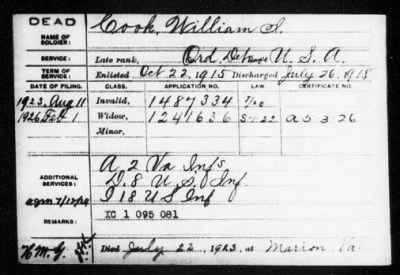 DEAD
NAME OF SOLDIER: Cook, William S.
SERVICE: Late rank, Ord. U.S.A.
TERM OF SERVICE: Enlisted Oct 22, 1915 Discharged July 26, 1918
DATE OF FILING. CLASS. APPLICATION NO. LAW CERTIFICATE NO.
1923, Aug 11 Invalid, 1487334
1926 Feb 1 Widow, 1241636 A 5 3 26
Minor,
ADDITIONAL SERVICES: A 2 Va Inf
D. 8 U.S. Inf
I 18 U S Inf
REMARKS: XC 1 095 081
Died July 22, 1923, at Marion, Va.